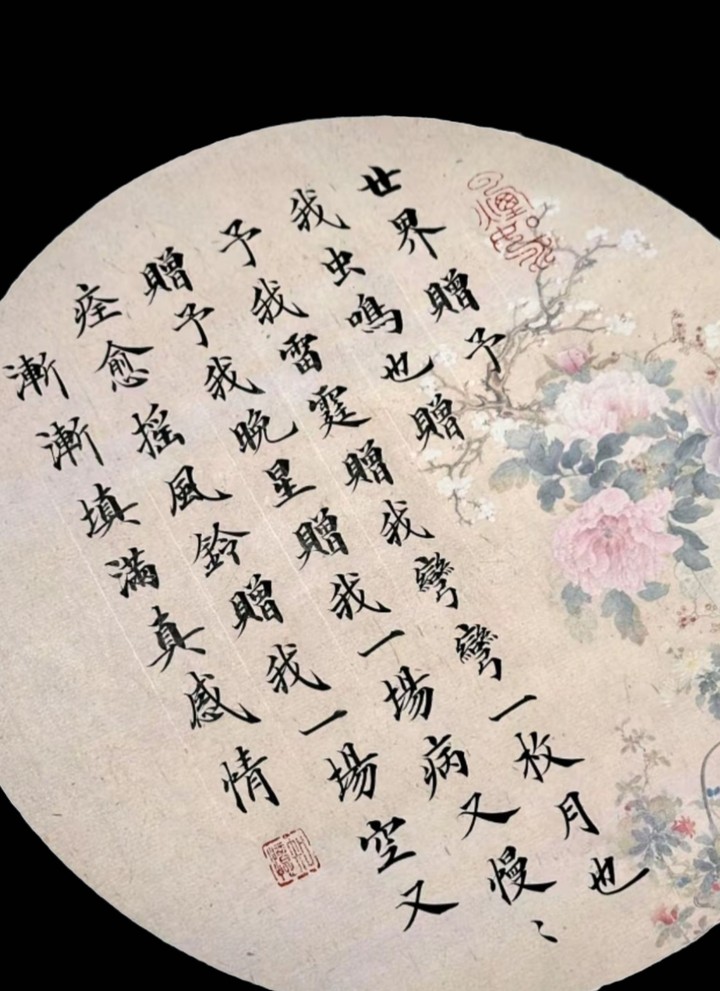 世界贈予
我虫鳴也贈
予我雷霆贈我彎彎一枚月也
贈予我晚星贈我一場病又慢〻
痊愈搖風鈴贈我一場空又
漸漸填滿真感情